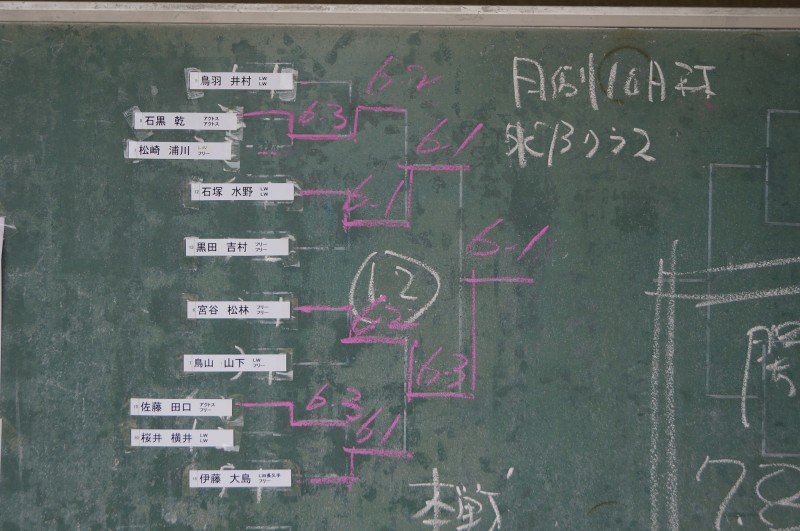 鳥羽 井村 LW LW
6-2
月例10月
石黒 乾 アクトス アクトス
6-3
松崎 浦川 LW フリー
6-1
水Bクラス
石塚 水野 LW LW
6-1
黒田 吉村 フリー フリー
6-1
12
宮谷 松林 フリー フリー
6-2
鳥山 山下 LW フリー
6-3
佐藤 田口 アクトス フリー
6-3
桜井 横井 LW LW
6-1
伊藤 大島 フリー
本戦
78